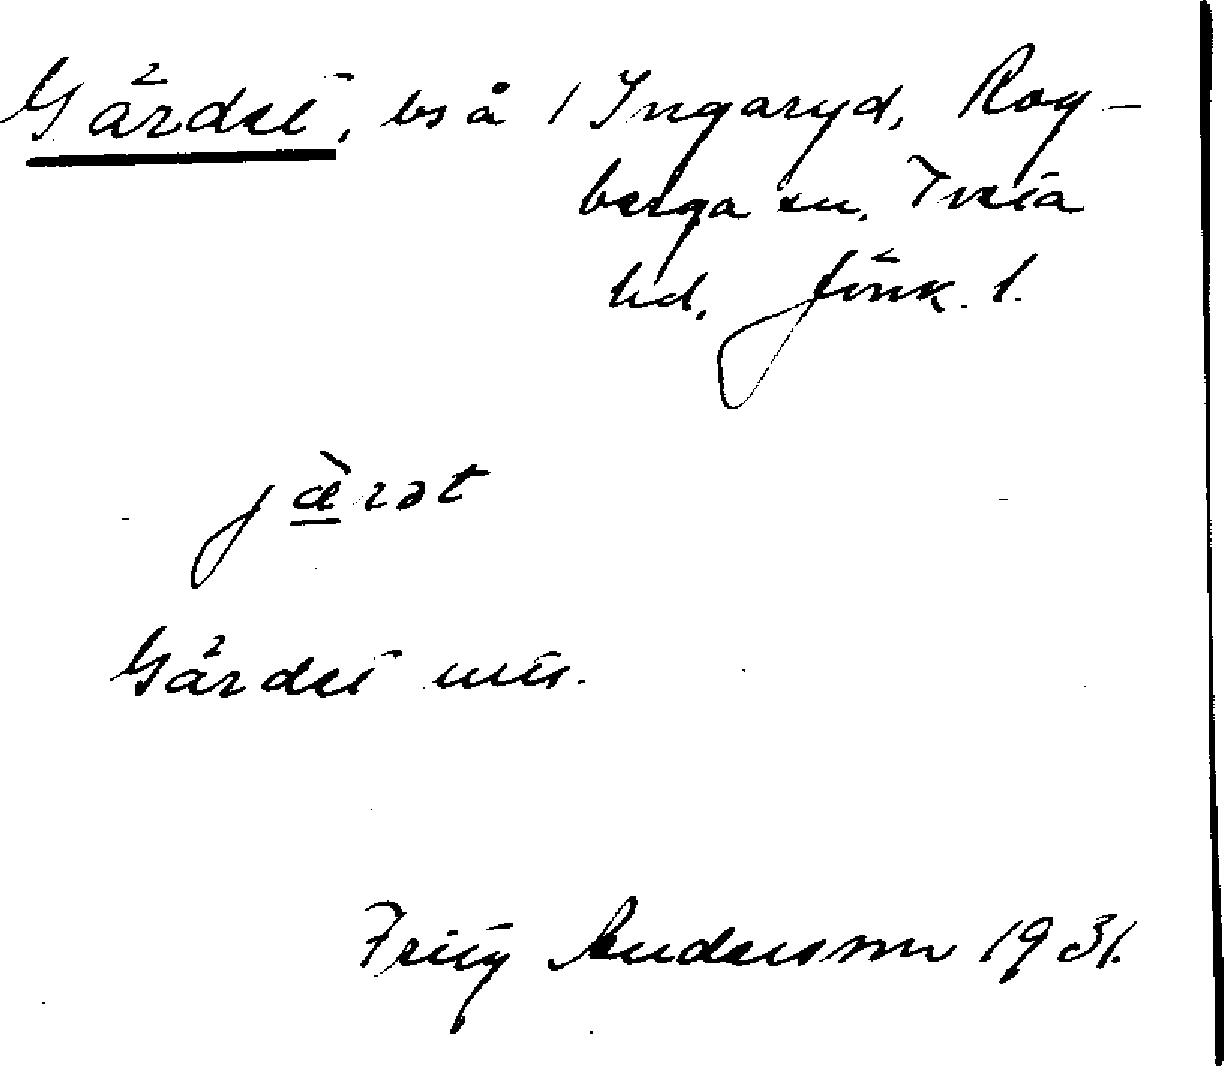 Gärdet, bs å 1 Ingaryd, Rog-
berga sn, Tveta
hd, Jönk. l.
jæ̀rət
Gärdet mts.
Fritz Andersson 1931.